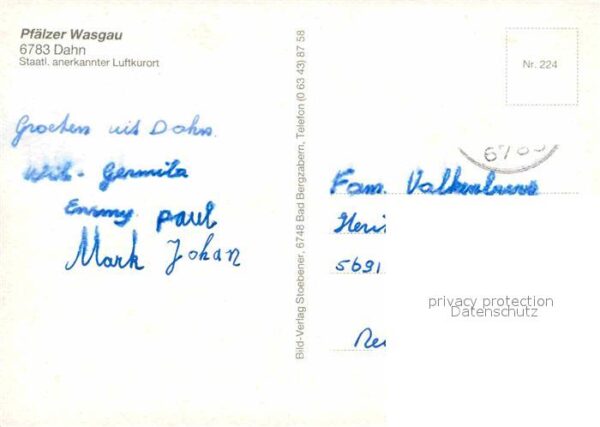 Pfälzer Wasgau
6783 Dahn
Staatl. anerkannter Luftkurort
Nr. 224
Groeten uit Dahn.
Germila
Emmy. paul
Mark Johan
Bild-Verlag Stoebener, 6748 Bad Bergzabern, Telefon (0 63 43) 87 58
Fam.
5691
privacy protection
Datenschutz